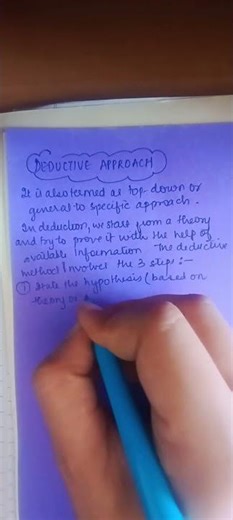 DEDUCTIVE APPROACH
It is also termed as top down or
general to specific approach.
In deduction, we start from a theory
and try to prove it with the help of
available information. The deductive
method involves the 3 steps :-
① State the hypothesis (based on
theory or